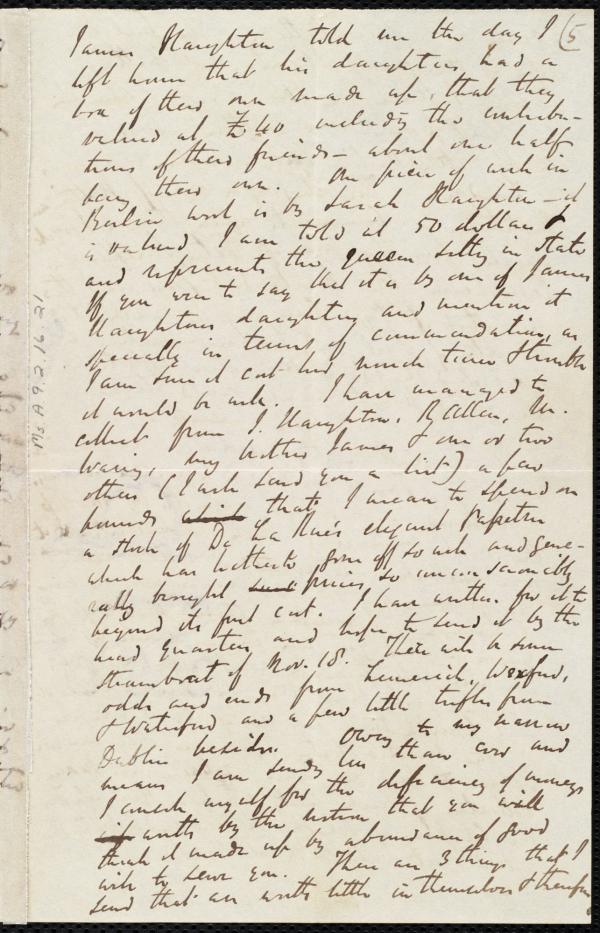 James Haughton told me the day I (5
left home that his daughters had a
box of their own made up, that they
valued at £40 including the contribu-
tions of their friends - about one half
being their own. One piece of work in
Berlin wool is by Sarah Haughton - it
is valued I am told at 50 dollars &
and represents the queen sitting in state
If you were to say that it is by one of James
Haughtons daughters and mention it
specially in terms of commendation, as
I am sure it cost her much time & trouble
it would be well. I have managed to
collect from J. Haughton, R Allen, Mr.
Waring, my brother James & one or two
others (I will send you a list) a few
pounds which that I mean to spend on
a stock of De La Rue's elegant Papetrie
which has hitherto gone off so well and gene-
rally brought prices so unreasonably
beyond its first cost. I have written for it to
head quarters and hope to send it by the
steamboat of Nov. 18. There will be some
odds and ends from Limerick, Wexford,
& Waterford and a few little trifles from
Dublin besides. Owing to my narrow
means I am sending less than ever and
I console myself for the deficiency of moneys
worth by the notion that you will
think it made up by abundance of good
will to serve you. There are 3 things that I
send that are worth little in themselves & therefore
Ms. A 9.2.16.21